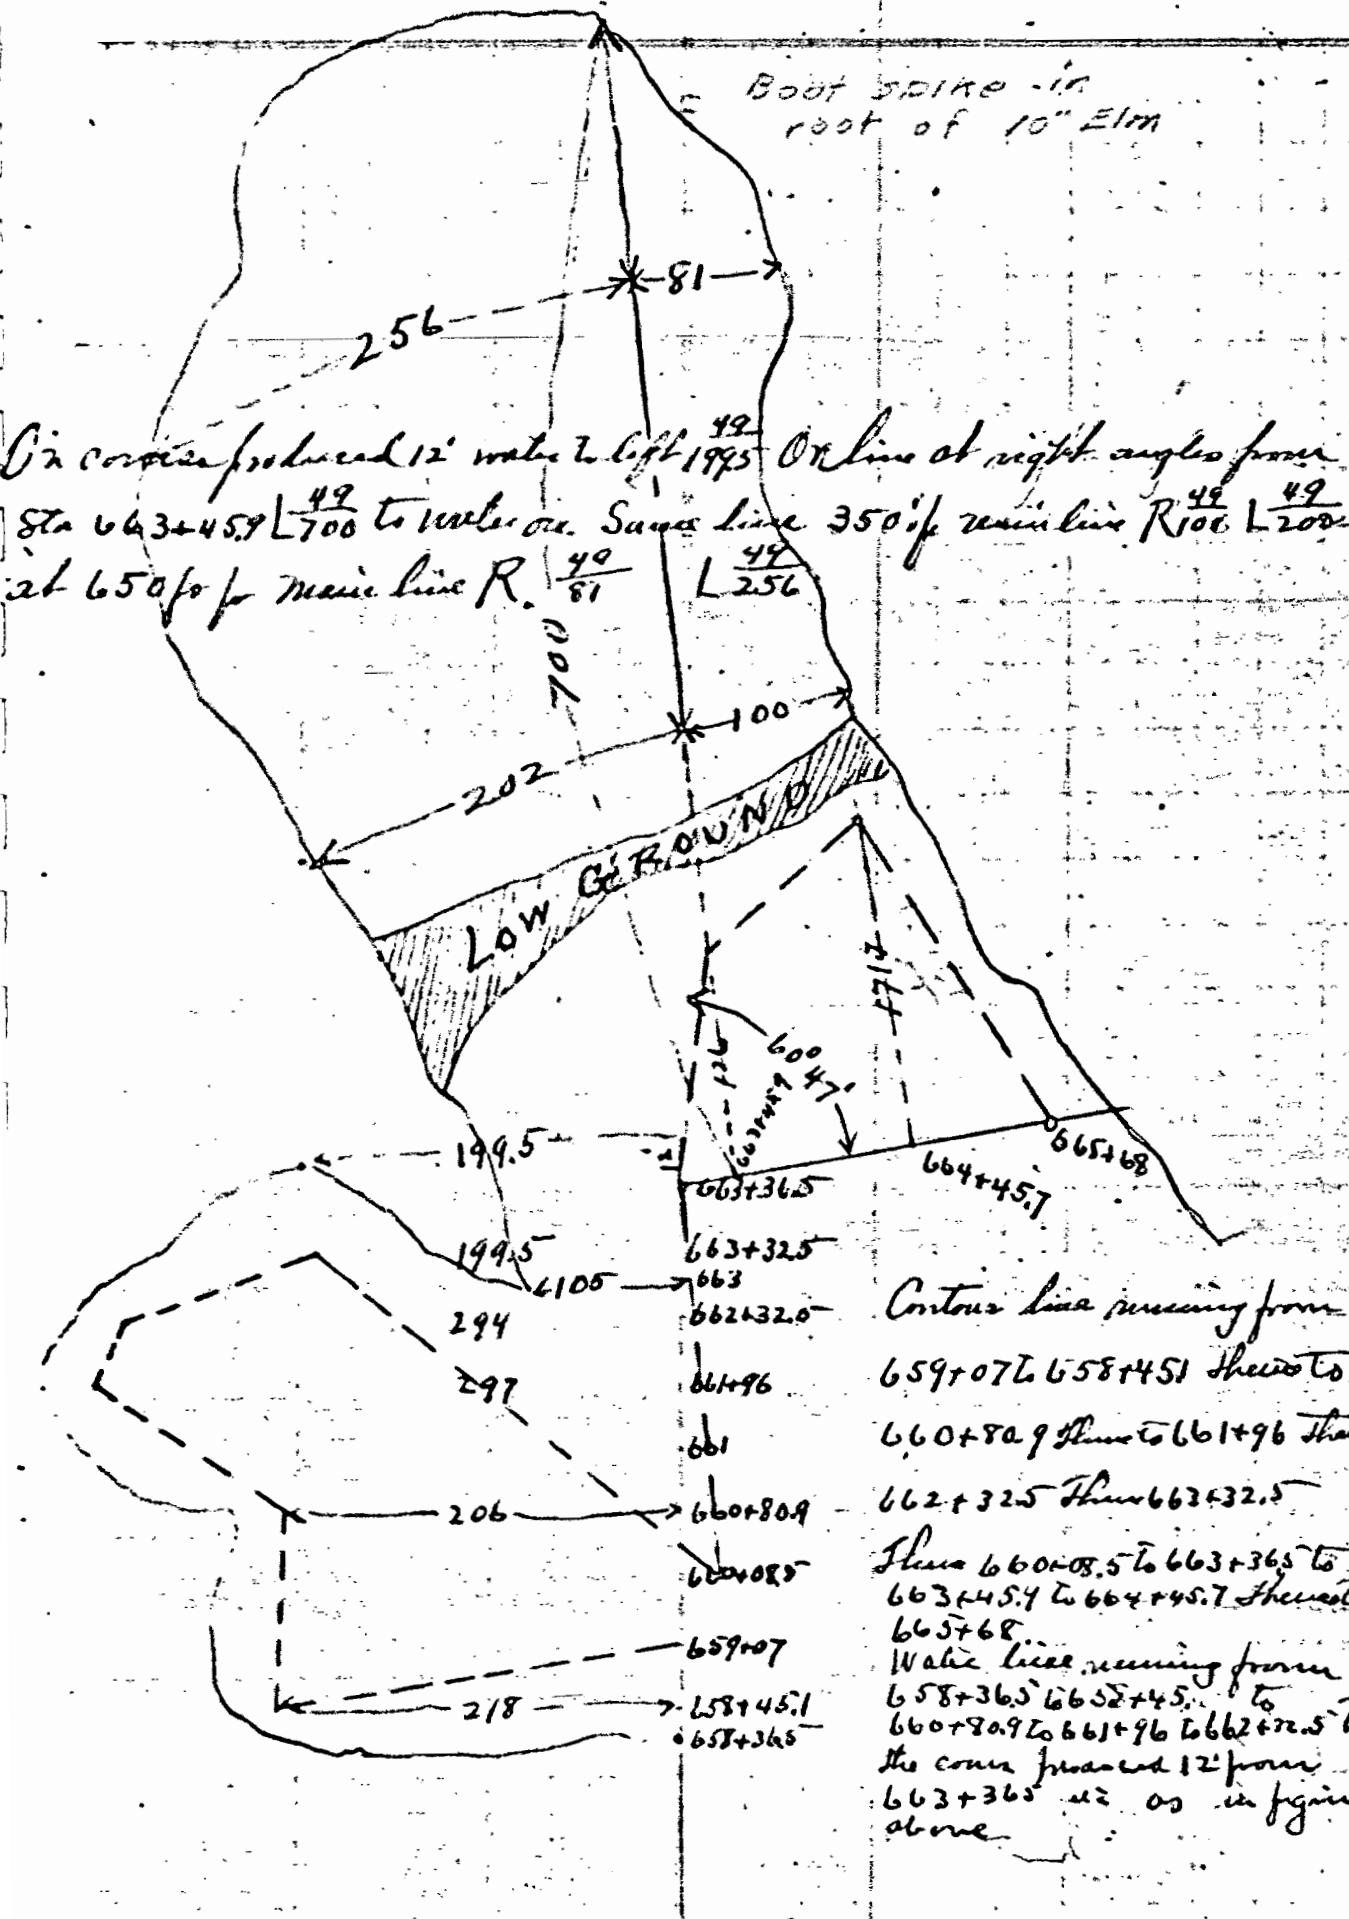 Boat spike in
root of 10" Elm
81
256
On corner produced 12' water to left 49/199.5 On line at right angles from
Sta 663+45.9 L 49/700 to water Same line 350' main line R 49/100 L 49/200
at 650 main line R. 49/81 L 49/256
700
100
202
LOW GROUND
+712
60° 47'
+26
663+45.9
199.5
12
663+36.5
664+45.7
665+68
199.5
663+32.5
105
663
294
662+32.5
297
661+96
661
206
660+80.9
660+08.5
659+07
218
658+45.1
658+36.5
Contour line running from
659+07 to 658+451 thence to
660+80.9 Thence to 661+96
662+32.5 Thence 663+32.5
Thence 660+08.5 to 663+36.5 to
663+45.9 to 664+45.7 Thence
665+68
Water line running from
658+36.5 to
660+80.9 to 661+96 to 662+32.5
the corner produced 12' from
663+365 as in figure
above